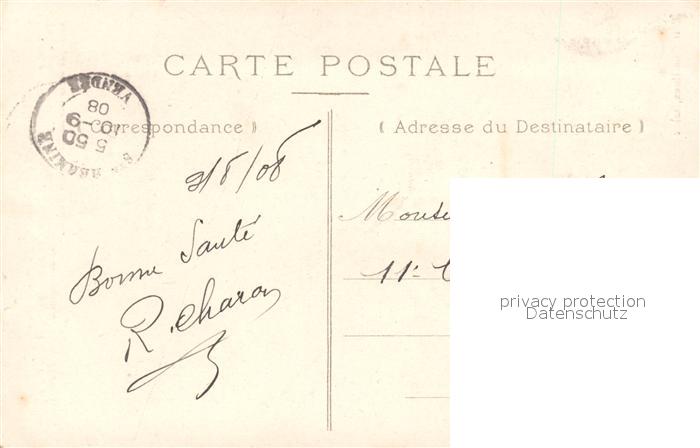 CARTE POSTALE
Correspondance ) ( Adresse du Destinataire )
VENDÉE
08
10-9
5 50
Bonne Santé
R. Charon
11e
privacy protection
Datenschutz